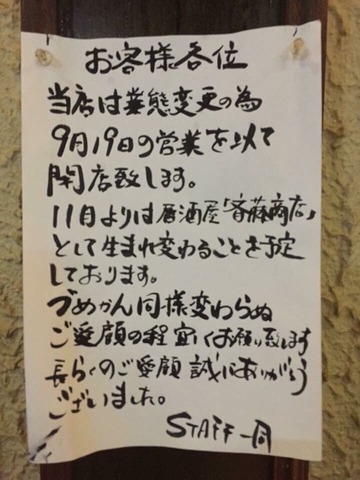 お客様各位
当店は業態変更の為
9月19日の営業を以て
閉店致します。
11月よりは居酒屋「斉藤商店」
として生まれ変わることを予定
しております。
づめかん同様変わらぬ
ご愛顧の程宜しくお願い致します
長らくのご愛顧誠にありがとう
ございました。
STAFF一同